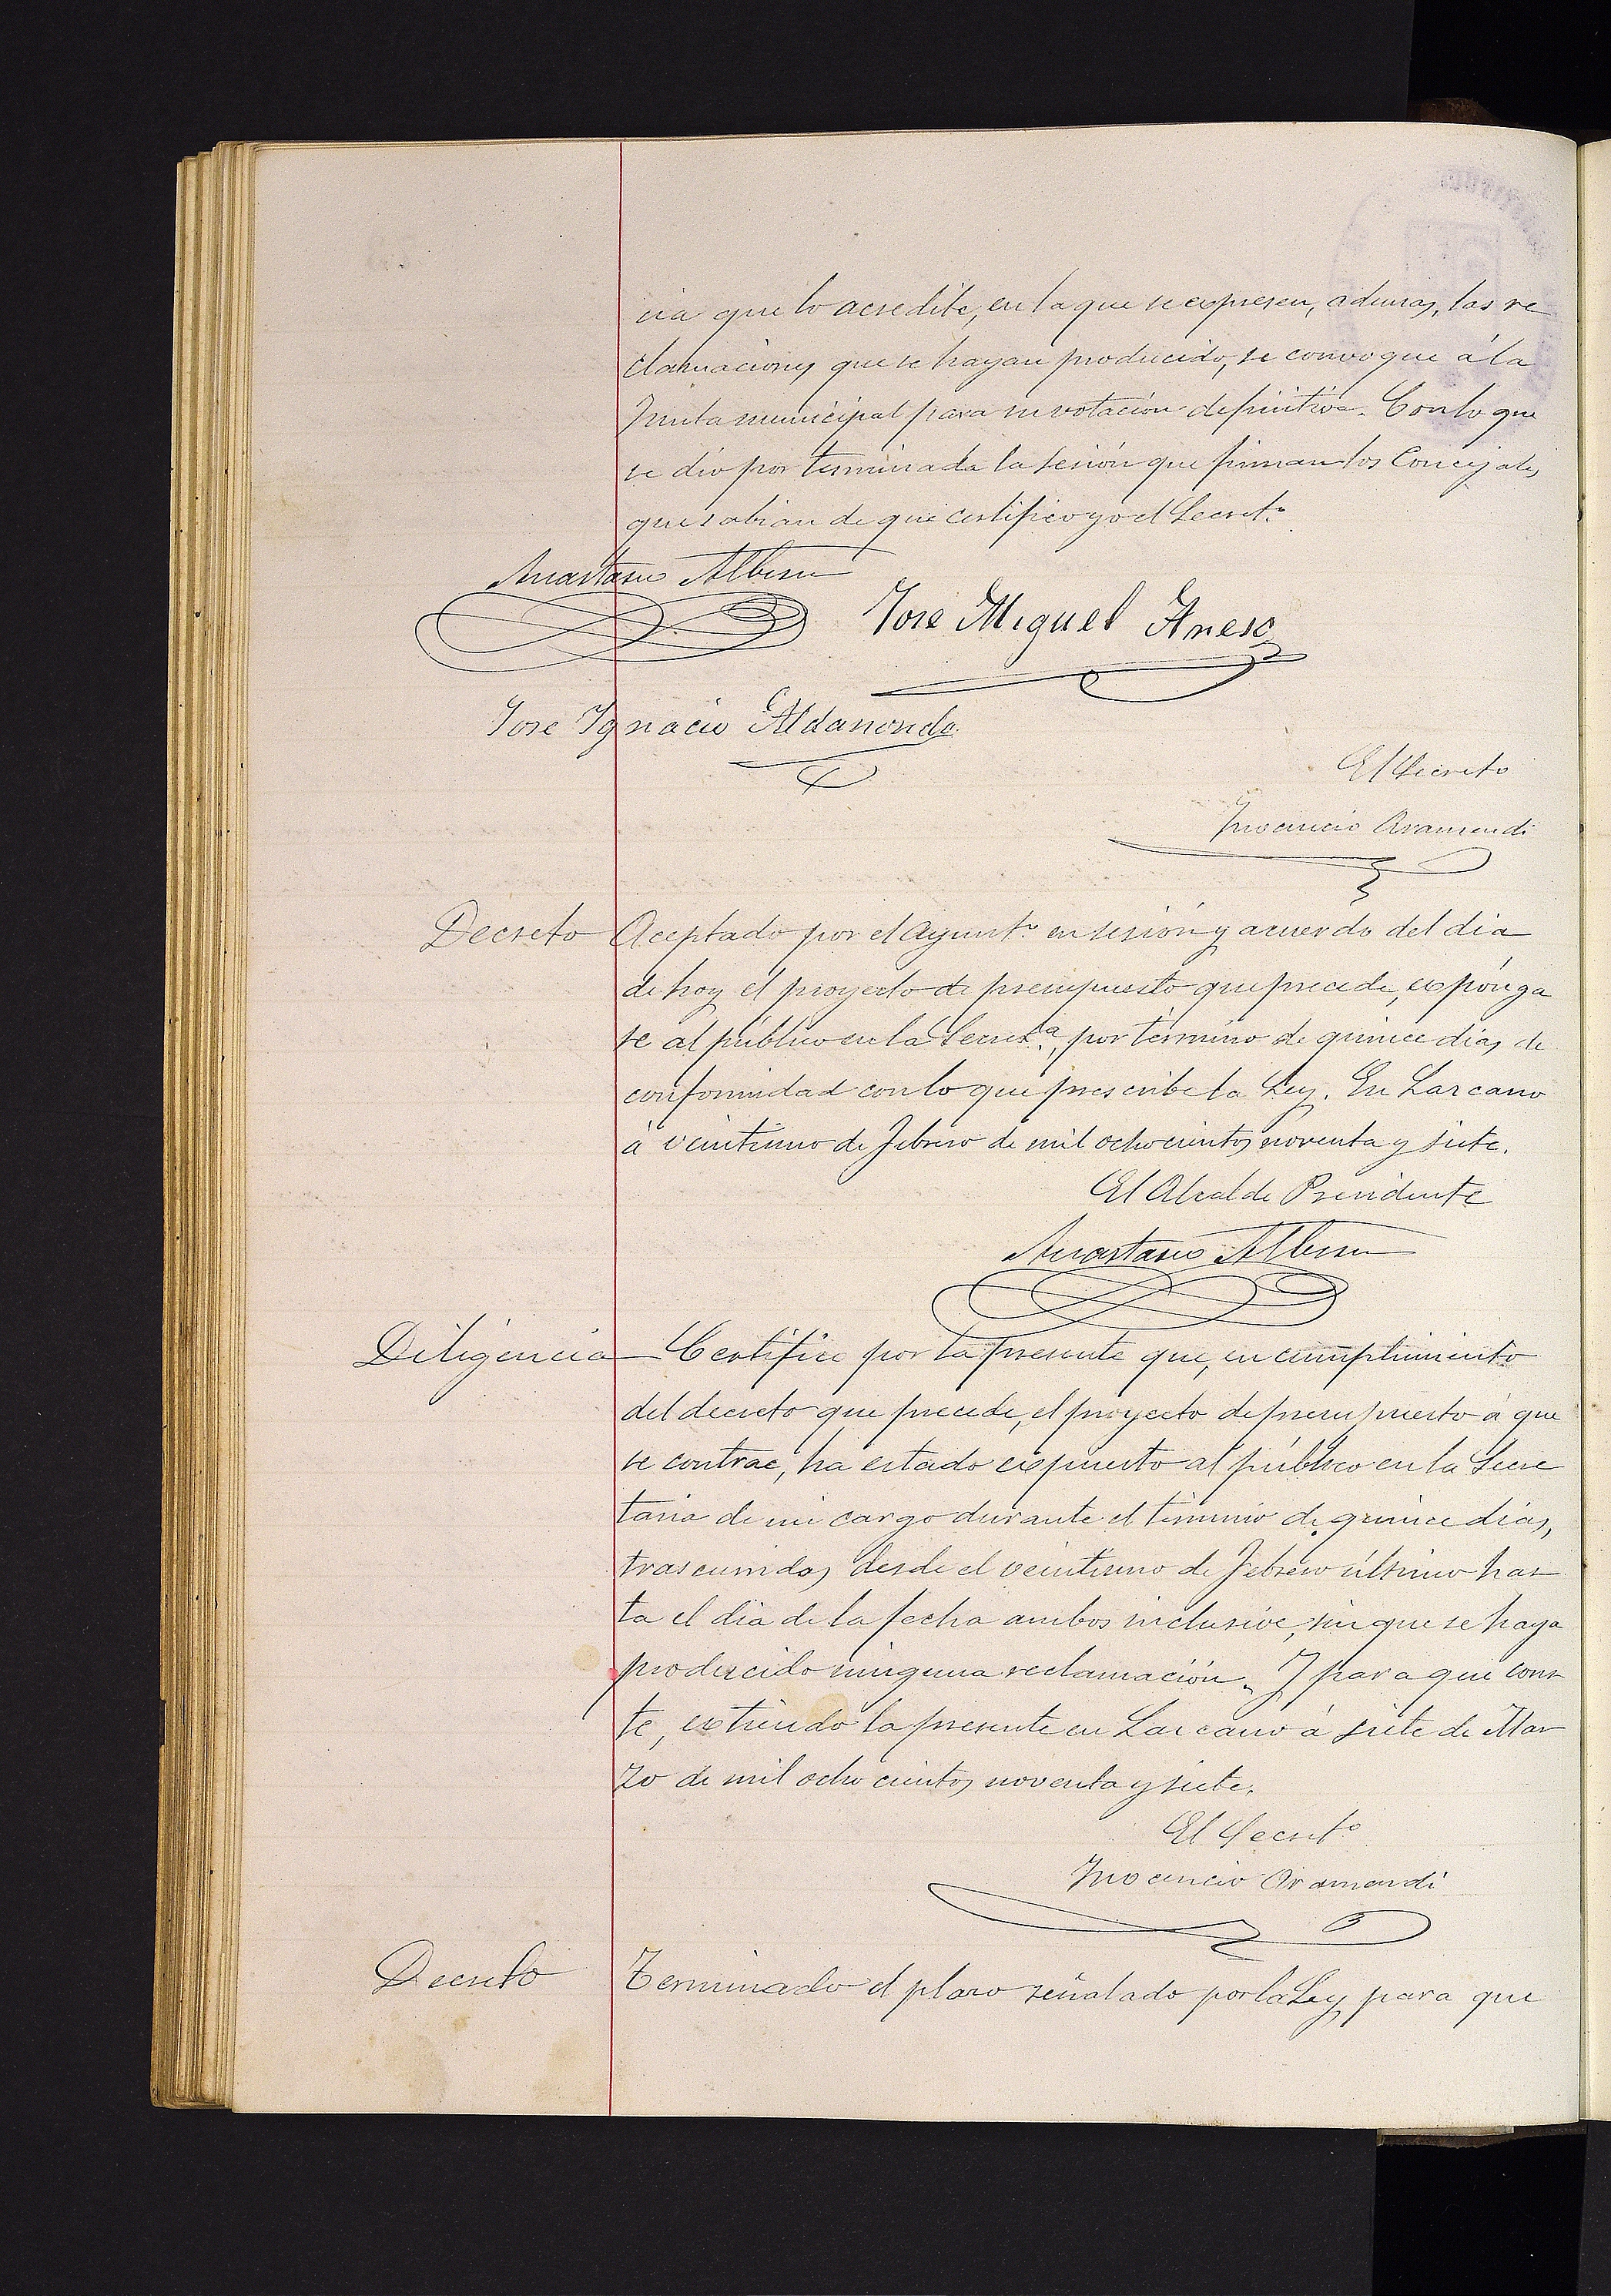 cia que lo acredite, en la que se expresen, ademas, las re
clamaciones que se hayan producido, se convoque á la
Junta municipal para su votación definitiva. Con lo que
se dió por terminada la sesión que firman los Concejales
que sabian de que certifico yo el Secret.º
Anastasio Albisu
Jose Miguel
Jose Ignacio Aldanondo
El Secreto
Inocencio Aramendi
Decreto Aceptado por el Ayunt.º en sesión y acuerdo del dia
de hoy el proyecto de presupuesto que precede, expónga
se al público en la Secret.ª, por término de quince dias, de
conformidad con lo que prescribe la Ley. En Lazcano
á veintiuno de Febrero de mil ochocientos noventa y siete.
El Alcalde Presidente
Anastasio Albisu
Diligencia Certifico por la presente que, en cumplimiento
del decreto que precede, el proyecto de presupuesto á que
se contrae, ha estado expuesto al público en la Secre
taria de mi cargo durante el término de quince dias,
trascurridos desde el veintiuno de Febrero último has
ta el dia de la fecha ambos inclusive, sin que se haya
producido ninguna reclamación. Y para que cons
te, extiendo la presente en Lazcano á siete de Mar
zo de mil ochocientos noventa y siete.
El Secret.º
Inocencio Aramendi
Decreto Terminado el plazo señalado por la Ley para que